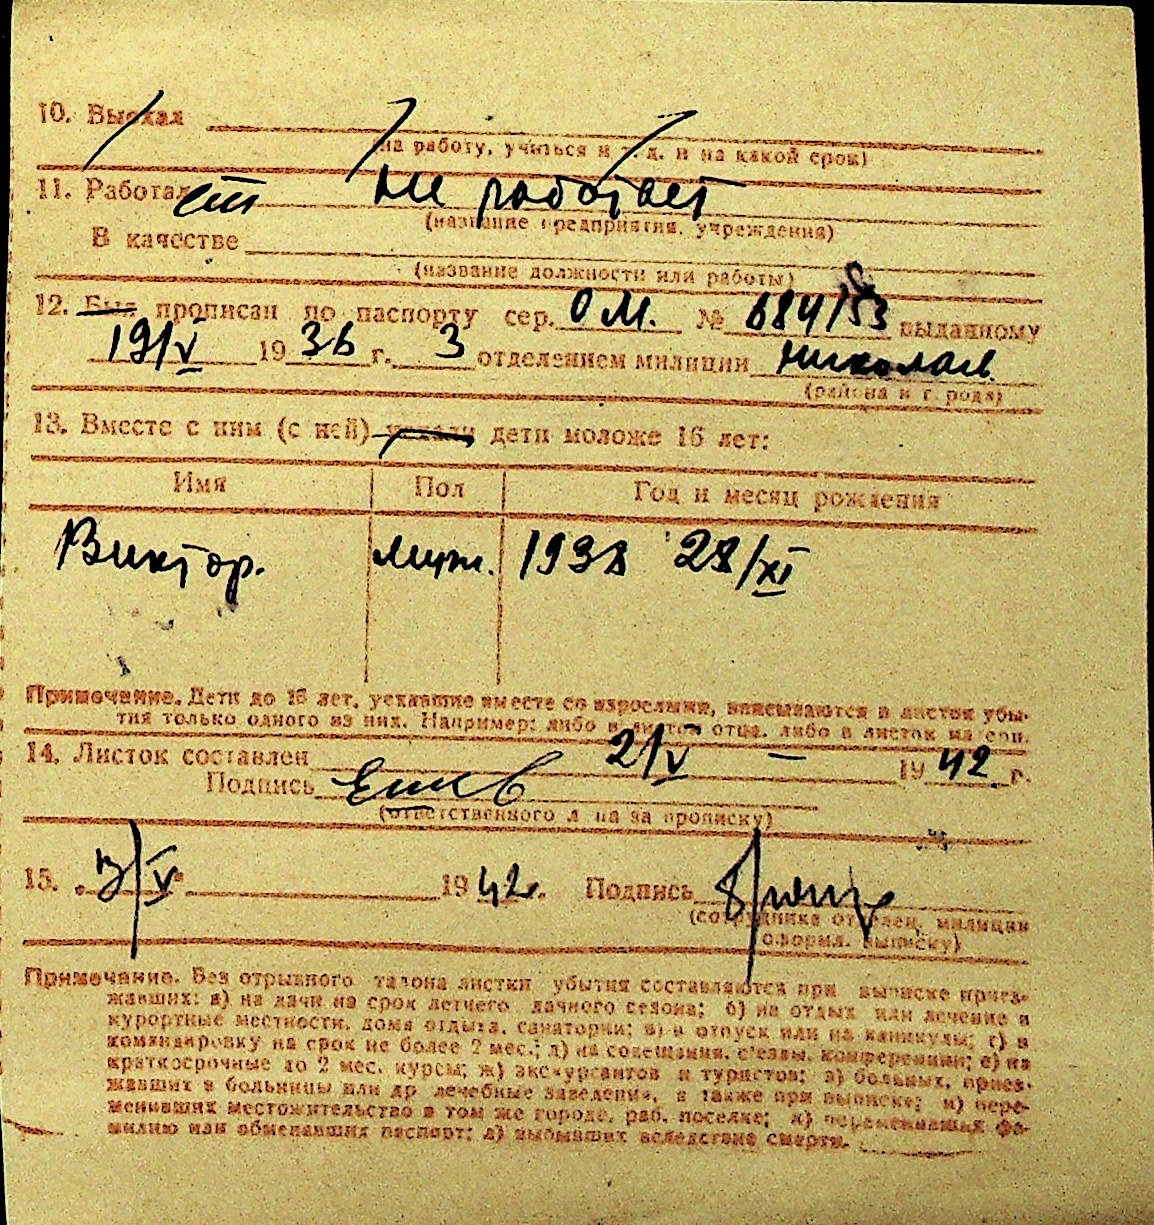 10. Выехал
(на работу, учиться и т. д. и на какой срок)
11. Работает не работает
(название предприятия, учреждения)
В качестве
(название должности или работы)
12. Был прописан по паспорту сер. О М. № 684153 выданному
19/V 1936 г. 3 отделением милиции Николаев.
(района и города)
13. Вместе с ним (с ней) уехали дети моложе 16 лет:
Имя Пол Год и месяц рождения
Виктор. муж. 1938 28/XI
Примечание. Дети до 16 лет, уехавшие вместе со взрослыми, вписываются в листок убы-
тия только одного из них. Например: либо в листок отца, либо в листок матери.
14. Листок составлен 2/V – 1942 г.
Подпись
(ответственного лица за прописку)
15. „3/V“ 1942 г. Подпись
(сотрудника отделен. милиции
оформл. выписку)
Примечание. Без отрывного талона листки убытия составляются при выписке приез-
жавших: а) на дачи на срок летнего дачного сезона; б) на отдых или лечение в
курортные местности, дома отдыха, санатории; в) в отпуск или на каникулы; г) в
командировку на срок не более 2 мес.; д) на совещания, съезды, конференции; е) на
краткосрочные до 2 мес. курсы; ж) экскурсантов и туристов; з) больных, приез-
жавших в больницы или др. лечебные заведения, а также при выписке; и) пере-
менивших местожительство в том же городе, раб. поселке; к) переменивших фа-
милию или обменявших паспорт; л) выбывших вследствие смерти.